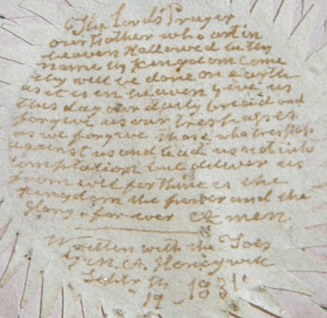 The Lord's Prayer
our Father who art in
heaven Hallowed be thy
name thy Kingdom come
thy will be done on earth
as it is in heaven give us
this day our daily bread and
forgive us our trespasses
as we forgive those who trespass
against us and lead us not into
temptation but deliver us
from evil for thine is the
Kingdom the power and the
Glory for ever Amen
Written with the Toes
by M. A. Honeywell
19 1831